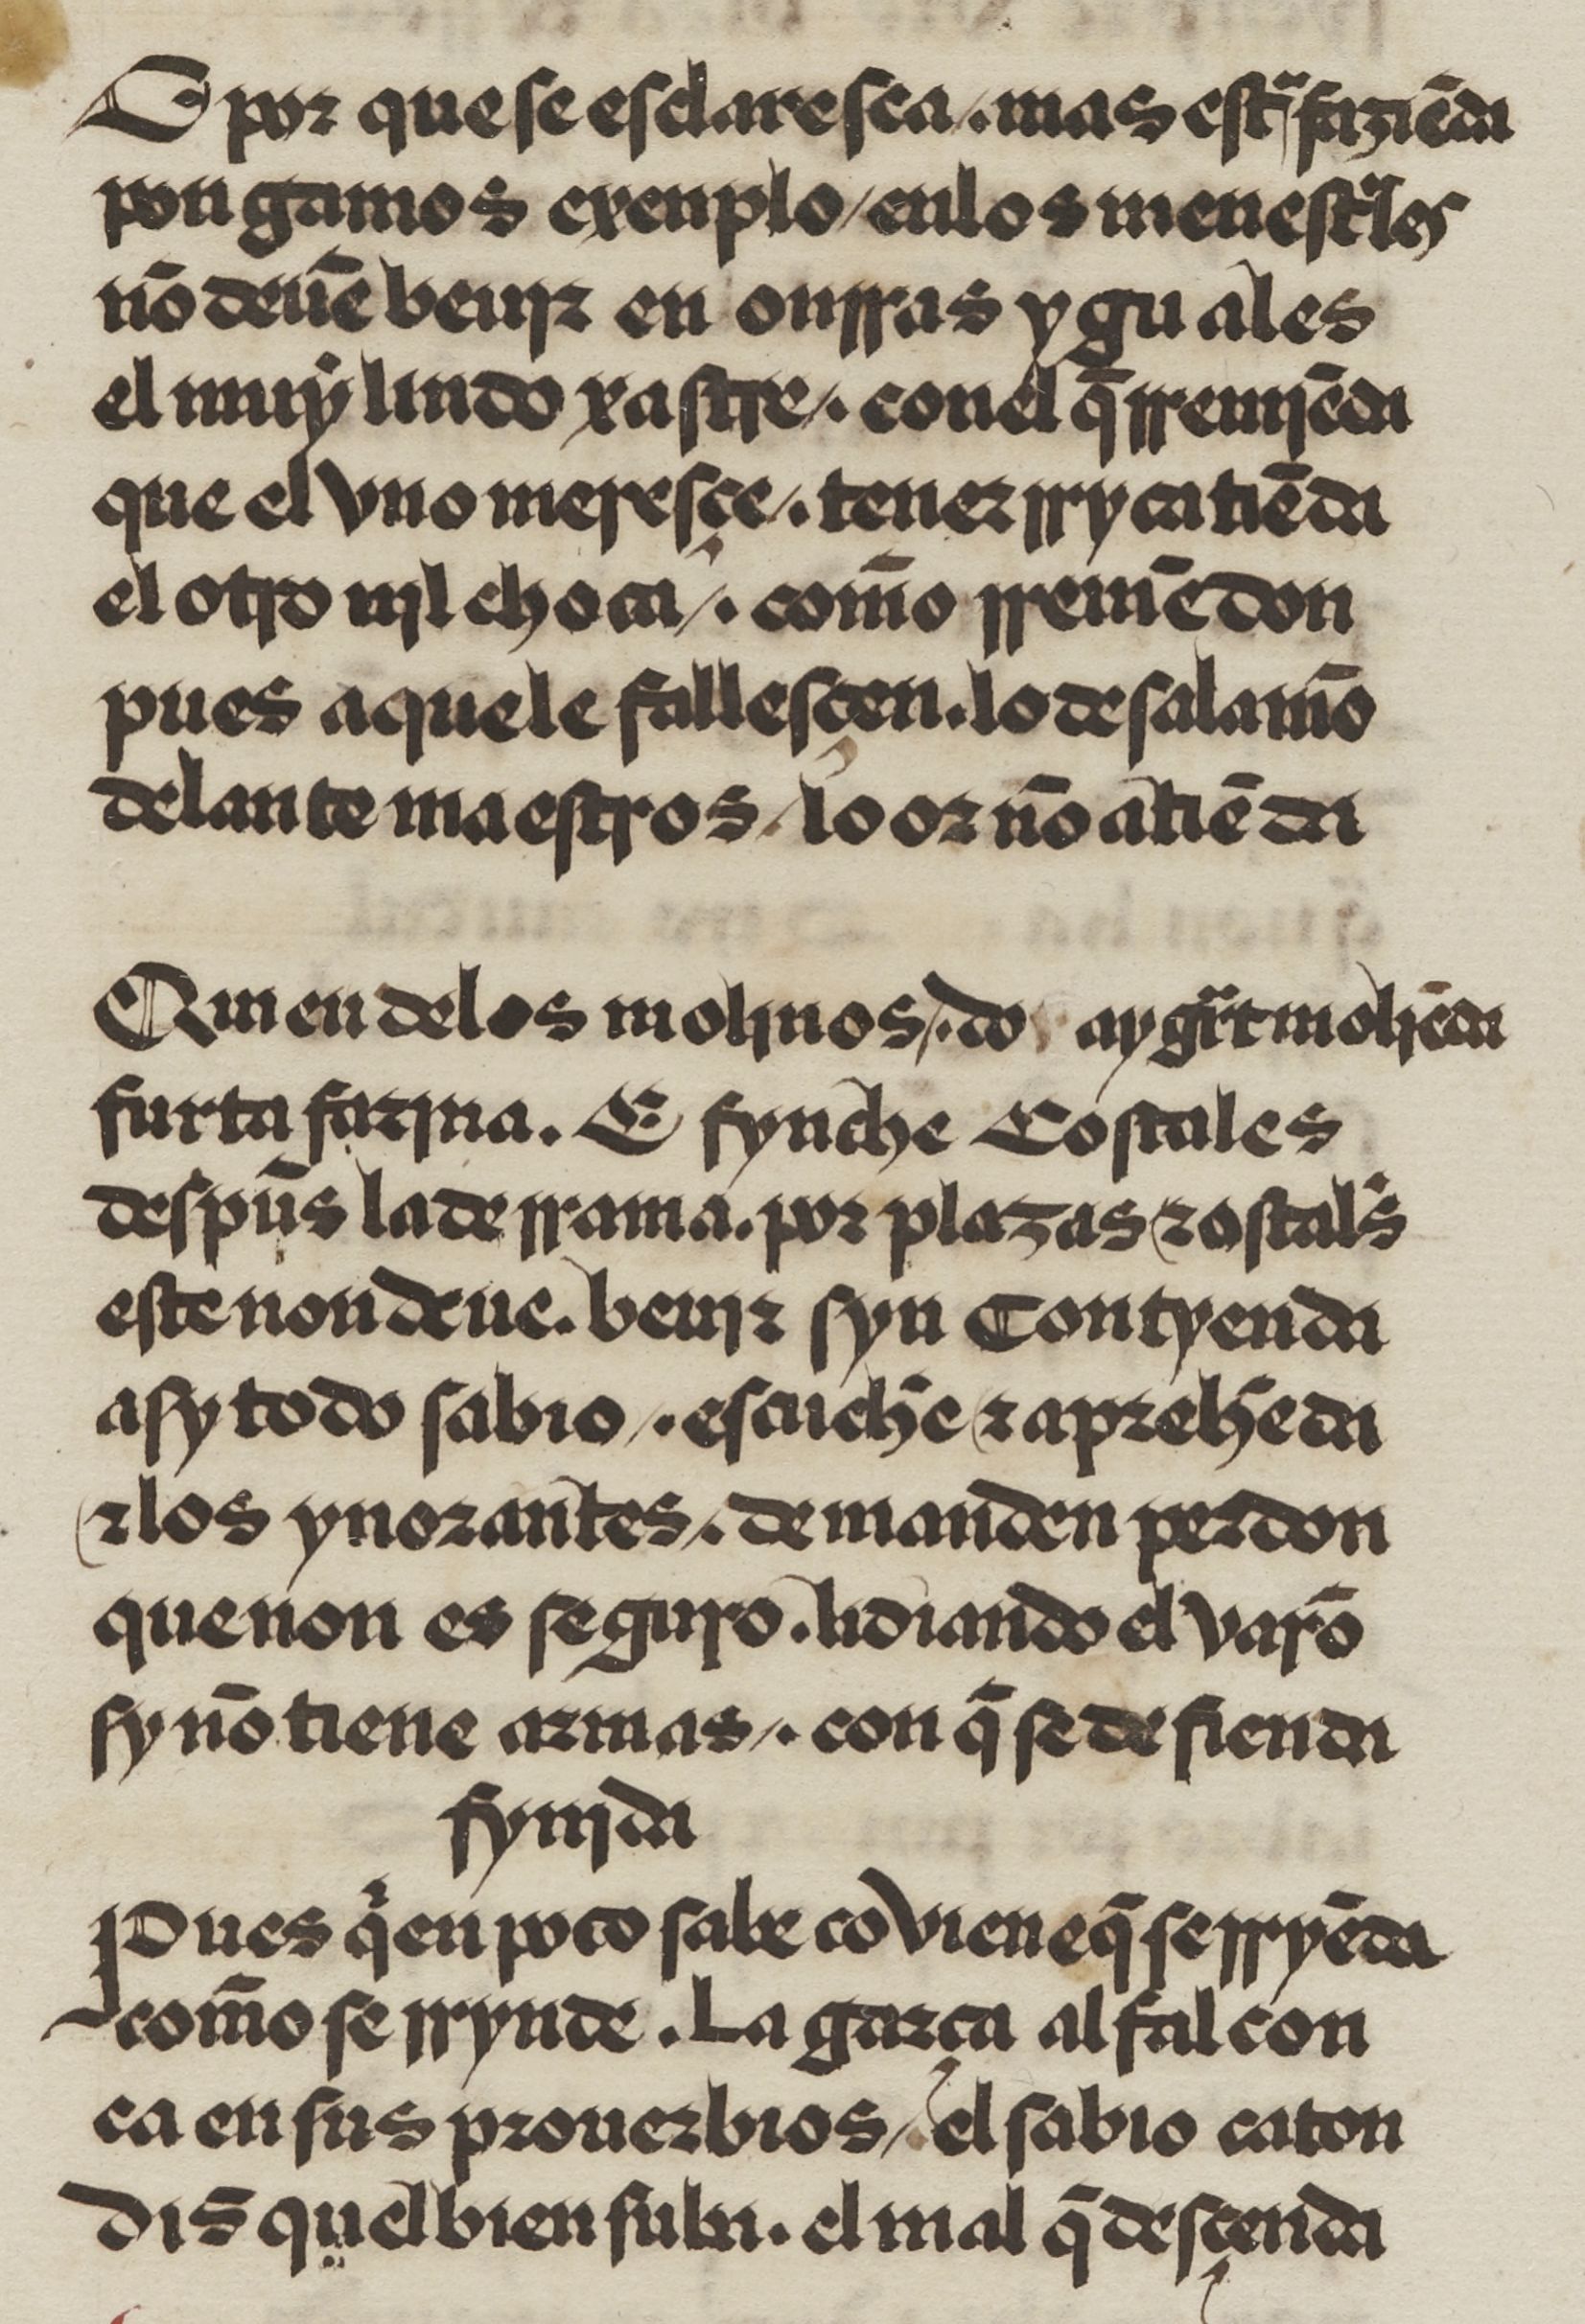 E por que se esclaresca /. mas est̃a faziẽda
pongamos exenplo / en los menestrͣles
nõ deuẽ beujr en onrras yguales
el muẏ lindo xastre /. con el q̃ rremjẽda
que el vno meresçe /. tener rryca tiẽda
el otro njl choca /. com̃o rremẽdon
pues aquele fallesçen . lo de salamõ
delante maestros / loor nõ atiẽda
Quien de los moljnos /. do ay grͣt moljẽda
furta farjna . E fynche Costales
despũs la derrama . por plazas ⁊ ostal's
este non deue . beujr syn Contyenda
asy todo sabio /. escuchẽ ⁊ aprehẽda
⁊ los ynorantes /. demanden perdon
que non es seguro . lidiando el varõ
sy nõ tiene armas /. con q̃ se defienda
fynjda
Pues qͥen poco sabe cõviene q̃ se rryẽda
com̃o se rrynde . La garça al falcon
ca en sus prouerbios / el sabio caton
dis̃ quel bien suba . el mal q̃ desçenda